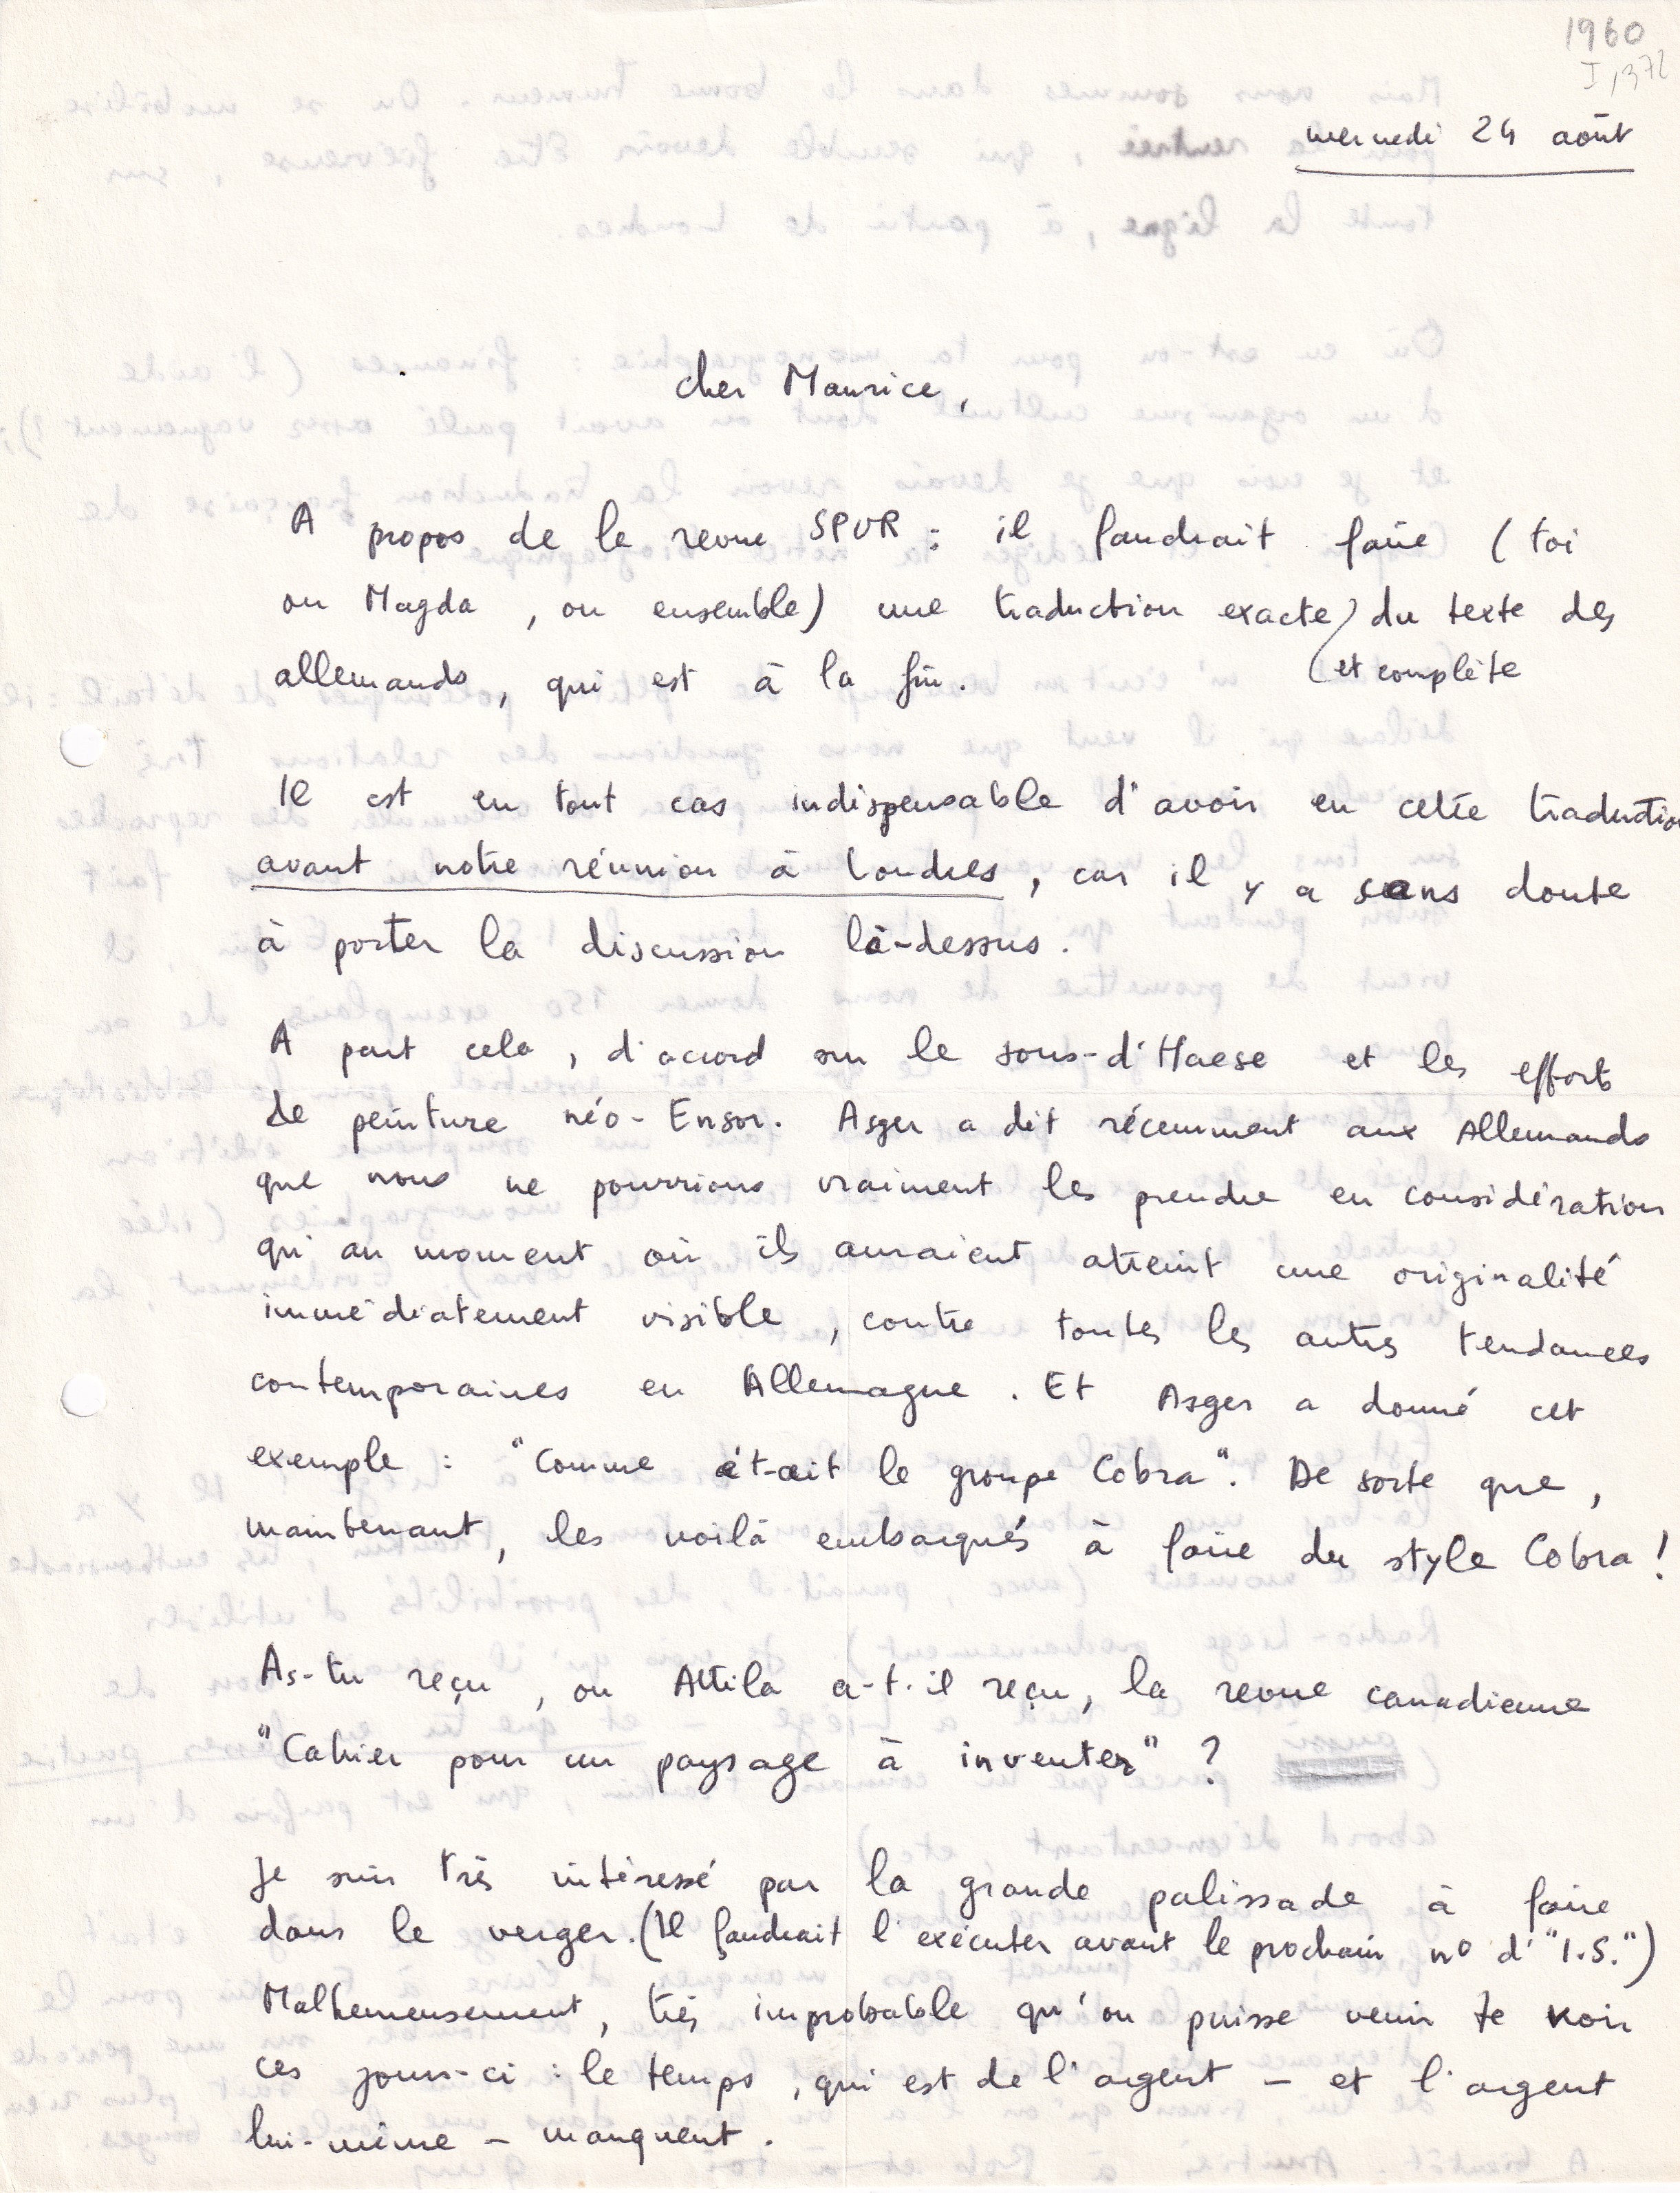 1960
I, 372
mercredi 24 août
cher Maurice,
A propos de la revue SPUR : il faudrait faire (toi
ou Magda, ou ensemble) une traduction exacte du texte des
et complète
allemands, qui est à la fin.
Il est en tout cas indispensable d'avoir eu cette traduction
avant notre réunion à Londres, car il y a sans doute
à porter la discussion là-dessus.
A part cela, d'accord sur le sous-d'Haese et les efforts
de peinture néo-Ensor. Asger a dit récemment aux Allemands
que nous ne pourrions vraiment les prendre en considération
qu'au moment où ils auraient atteint une originalité
immédiatement visible, contre toutes les autres tendances
contemporaines en Allemagne. Et Asger a donné cet
exemple : "Comme était le groupe Cobra". De sorte que,
maintenant, les voilà embarqués à faire du style Cobra !
As-tu reçu, ou Attila a-t-il reçu, la revue canadienne
"Cahier pour un paysage à inventer" ?
Je suis très intéressé par la grande palissade à faire
dans le verger. (Il faudrait l'exécuter avant le prochain no d'"I.S.")
Malheureusement, très improbable qu'on puisse venir te voir
ces jours-ci : le temps, qui est de l'argent – et l'argent
lui-même – manquent.